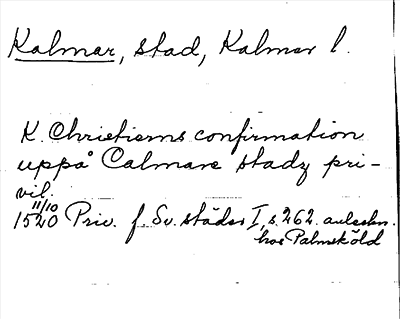 Kalmar, stad, Kalmar l.
K. Christierns confirmation
uppå Calmare stadz pri-
vil.
11/10
1520 Priv. f. Sv. städer I, s. 262. avleskr.
hos Palmsköld